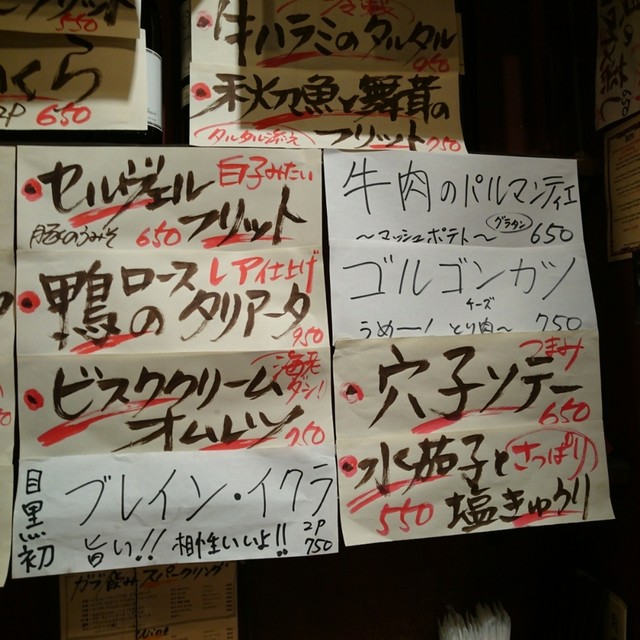 550
いくら
2P 650
牛ハラミのタルタル
950
秋刀魚と舞茸の
タルタル添え フリット 750
セルヴェル 白子みたい
フリット
豚ののうみそ 650
鴨ロース レア仕上げ
のタリアータ
950
ビスククリーム 海老ダシ!
オムレツ 750
目黒初
ブレイン・イクラ
旨い!! 相性いいよ!! 2P 750
牛肉のパルマンティエ
〜マッシュポテト〜 グラタン 650
ゴルゴンカツ
チーズ
うめー! とり肉〜 750
つまみ
穴子ソテー
650
水茄子と さっぱり
550 塩きゅうり
ガブ飲みスパークリング
Wine